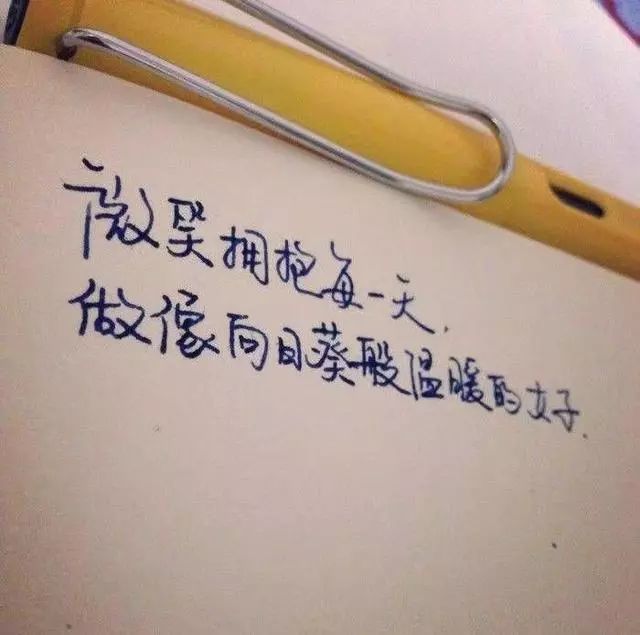 微笑拥抱每一天,
做像向日葵般温暖的女子.